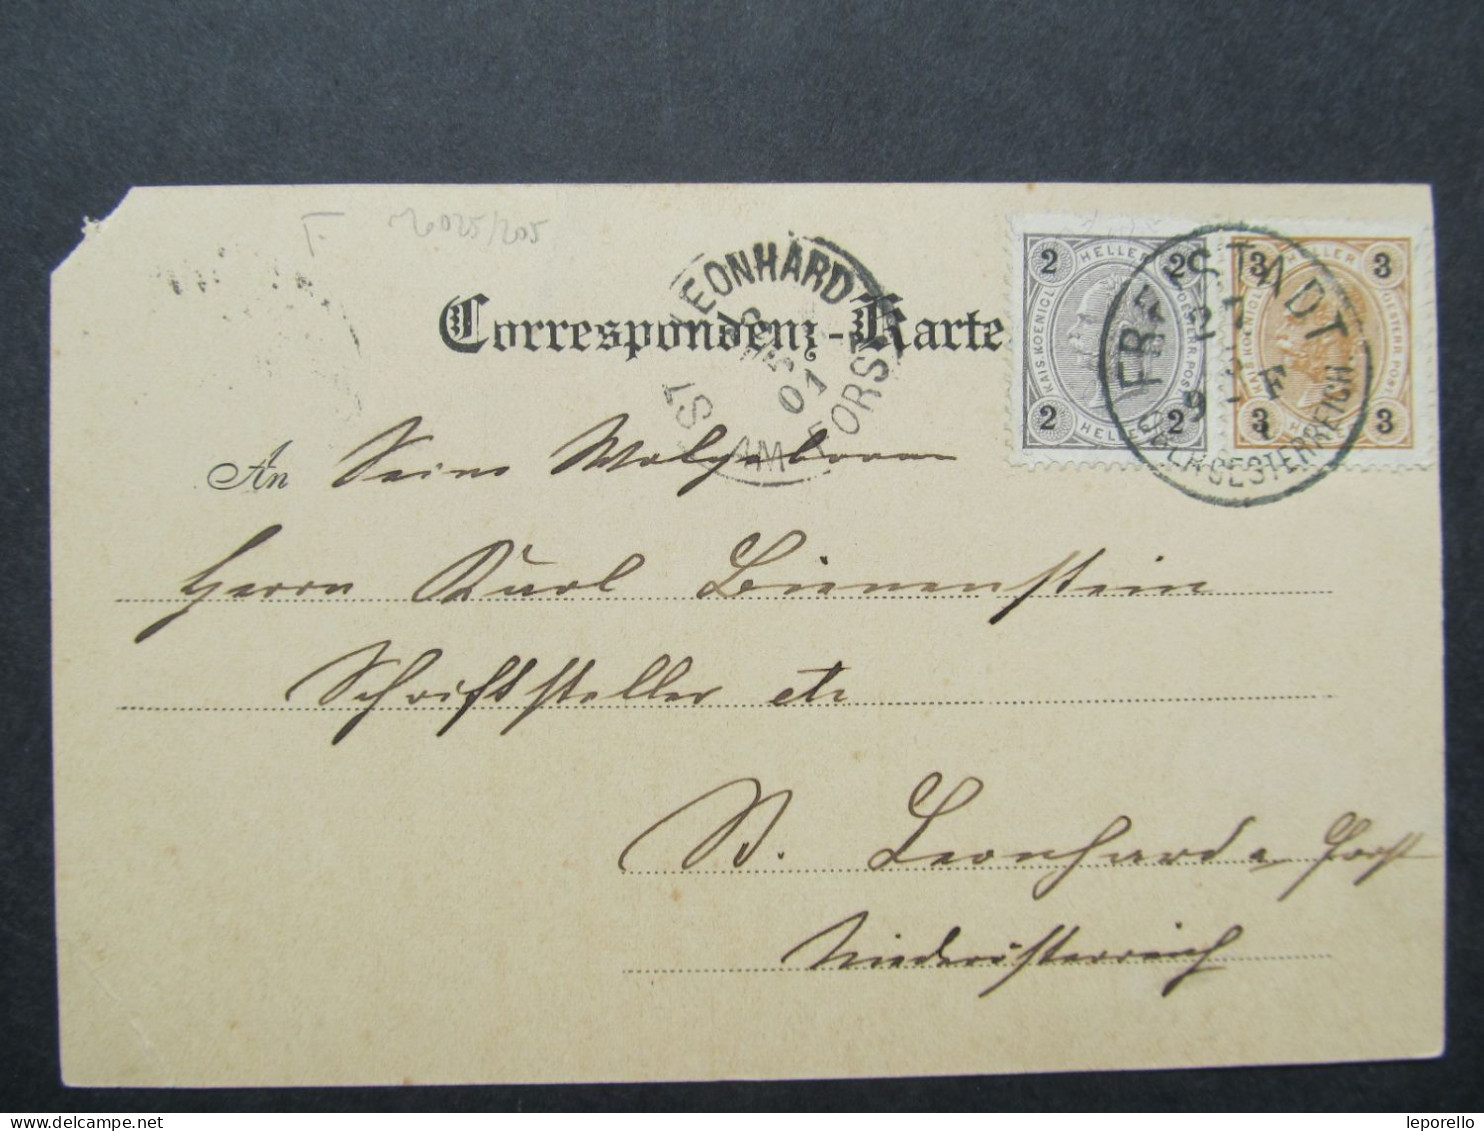 T. 26025/205
Correspondenz-Karte
ST LEONHARD AM FORST
01
2 HELLER 2
KAIS. KOENIGL. OESTERR. POST
2 HELLER 2
3 HELLER 3
KAIS. KOENIGL. OESTERR. POST
3 HELLER 3
FREISTADT
27
9 - F
OBEROESTERREICH.
An Seine Wolgeboren
Herrn Karl Bienenstein
Schriftsteller etc
St. Leonhard a Forst
Niederösterreich
leporello